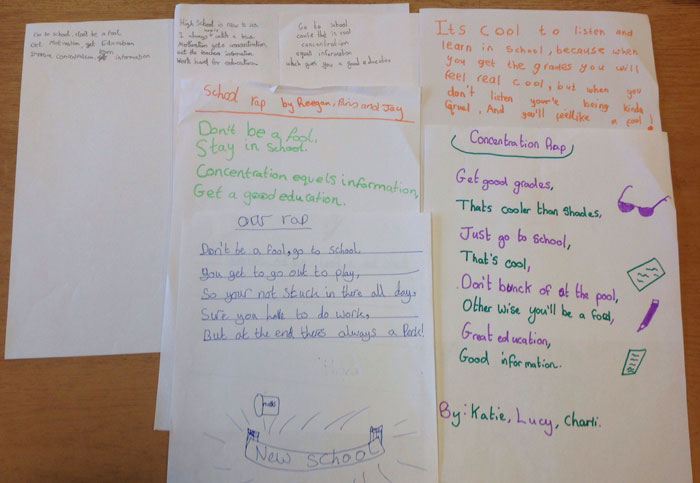 Go to school, dont be a fool
Get Motivation, get Education
concentration, get information
High School is new to us
I always with a buss
Motivation gets concentration
out the teachers information
Work hard for education.
Go to school
cause that is cool
concentration
equals information
which gives you a good education
Its cool to listen and
learn in school, because when
you get the grades you will
feel real cool, but when you
don't listen your'e being kinda
cruel. And you'll feellike a fool!
School rap by Reegan, Rhis and Jay
Don't be a fool.
Stay in school.
Concentration equels information,
Get a good education.
our rap
Don't be a fool, go to school.
You get to go out to play,
So your not stuck in there all day,
Sure you have to do work,
But at the end theres always a Perk!
New school
Concentration Rap
Get good grades,
Thats cooler than shades,
Just go to school,
That's cool,
Don't bunck of at the pool,
Other wise you'll be a fool,
Great education,
Good information.
By: Katie, Lucy, Charli.